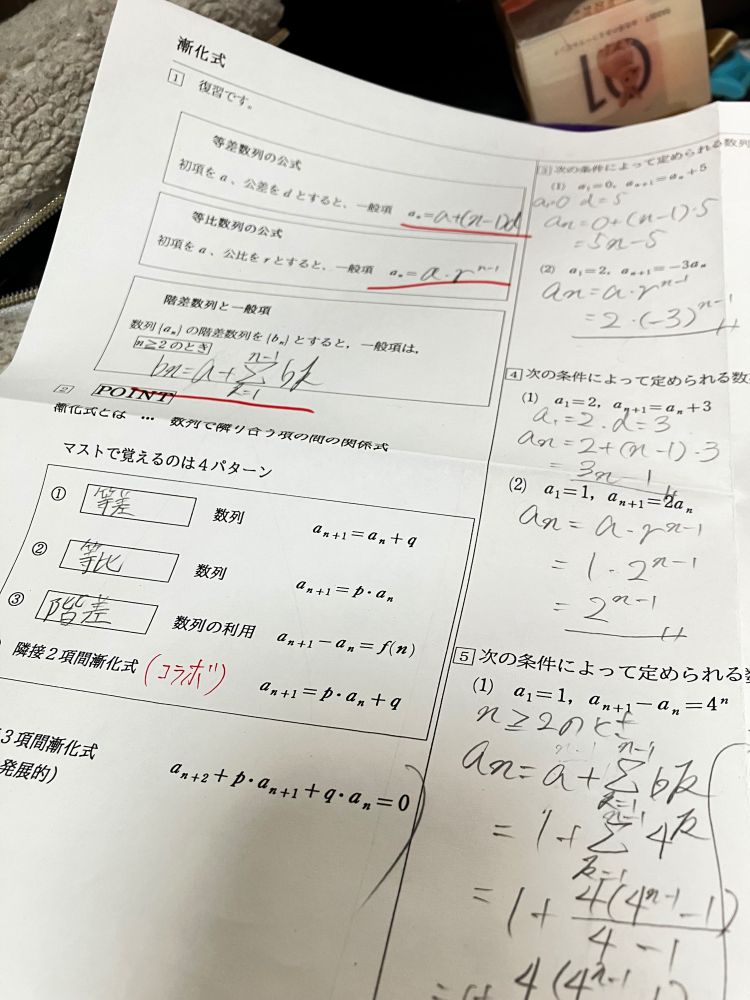 漸化式
1 復習です。
等差数列の公式
初項を a 、公差を d とすると、一般項 aₙ=a+(n-1)d
等比数列の公式
初項を a 、公比を r とすると、一般項 aₙ=a・r^{n-1}
階差数列と一般項
数列{aₙ}の階差数列を{bₙ}とすると、一般項は、
n≧2のとき
bn=a+Σ_{k=1}^{n-1} bk
2 POINT
漸化式とは … 数列で隣り合う項の間の関係式
マストで覚えるのは4パターン
① 等差 数列 a_{n+1}=aₙ+q
② 等比 数列 a_{n+1}=p・aₙ
③ 階差 数列の利用 a_{n+1}-aₙ=f(n)
隣接2項間漸化式 (コラボ) a_{n+1}=p・aₙ+q
3項間漸化式
発展的) a_{n+2}+p・a_{n+1}+q・aₙ=0
3 次の条件によって定められる数列
(1) a₁=0, a_{n+1}=aₙ+5
a=0 d=5
an=0+(n-1)・5
=5n-5
(2) a₁=2, a_{n+1}=-3aₙ
an=a・r^{n-1}
=2・(-3)^{n-1}
4 次の条件によって定められる数
(1) a₁=2, a_{n+1}=aₙ+3
a₁=2・d=3
an=2+(n-1)・3
=3n-1
(2) a₁=1, a_{n+1}=2aₙ
an=a・r^{n-1}
=1・2^{n-1}
=2^{n-1}
5 次の条件によって定められる
(1) a₁=1, a_{n+1}-aₙ=4ⁿ
n≧2のとき
an=a+Σ_{k=1}^{n-1} bk
=1+Σ_{k=1}^{n-1} 4^k
=1+4(4^{n-1}-1)/4-1
4(4^{n-1}